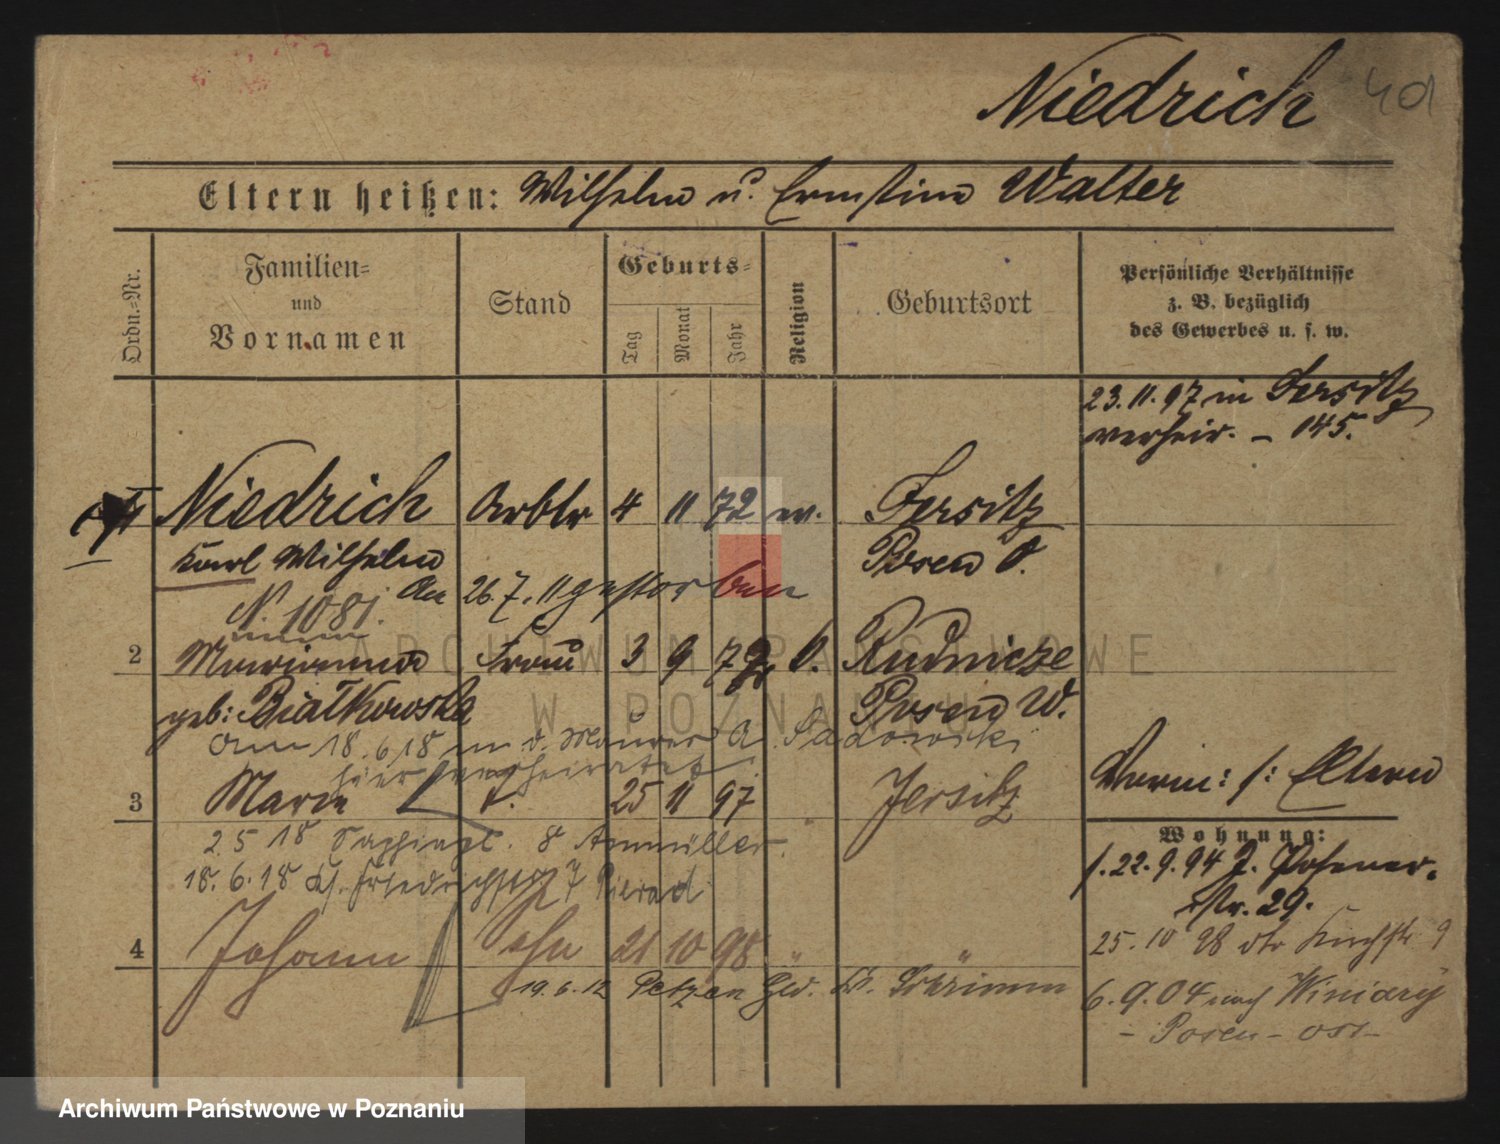 Niedrich
Eltern heißen: Wilhelm u. Ernstine Walter
Ordn.-Nr.
Familien-
und
Vornamen
Stand
Geburts-
Tag
Monat
Jahr
Religion
Geburtsort
Persönliche Verhältnisse
z. B. bezüglich
des Gewerbes u. s. w.
23.11.97 in Jersitz
verheir. - 145.
Niedrich Arbtr 4 11 72 ev. Jersitz
Karl Wilhelm Posen O.
N. 1081. Am 26.7.11 gestorben
2 Marianna Frau 3 9 72 k. Rudnicze
geb: Białkowska Posen W.
Am 18.6.18 m d. Maurer A. Sadowski
hier verheiratet.
3 Marie T. 25 11 97 " Jersitz
Vorm: f: Eltern
2 5 18 8 Annmüller.
18.6.18 7
4 Johann Sohn 21 10 98 " "
19.6.12 Kr. Schrimm
Wohnung:
f. 22.9.94 J. Posener-
str. 29.
25.10 98 dto Kirchstr 9
6.9.04 nach Winiary
- Posen - Ost -
ARCHIWUM PAŃSTWOWE
W POZNANIU
Archiwum Państwowe w Poznaniu